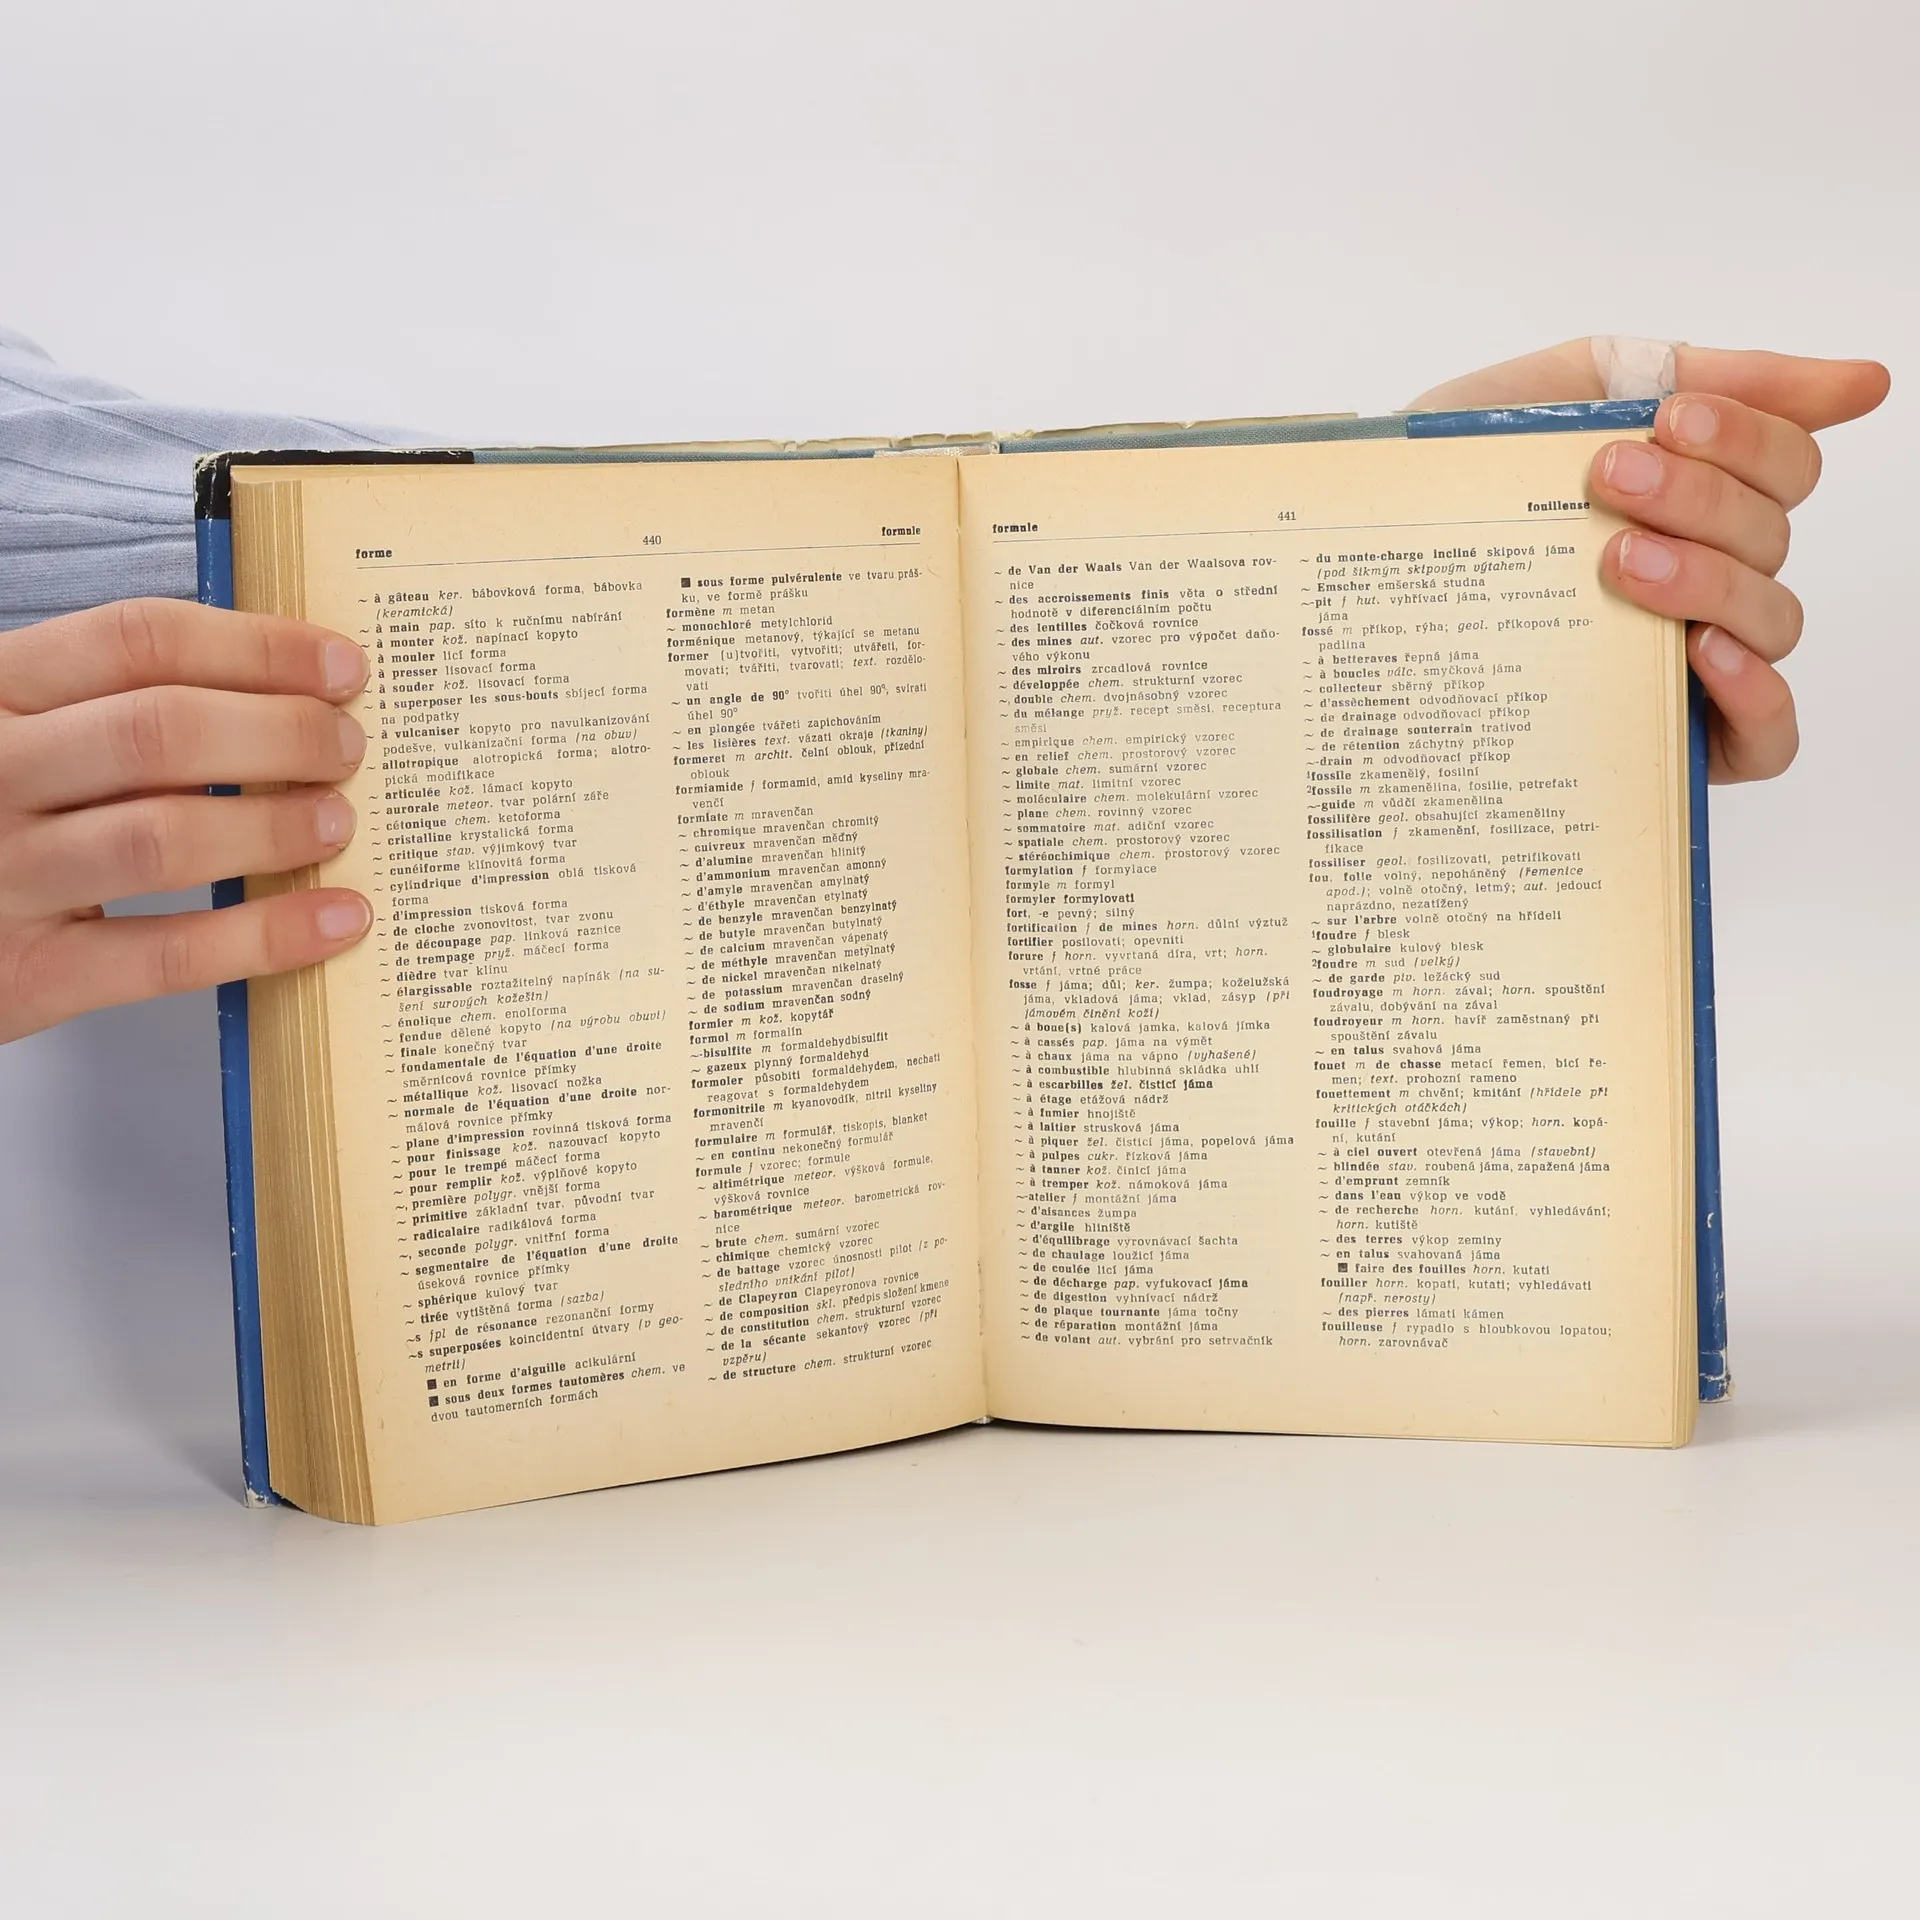 forme 440 formule
~ à gâteau ker. bábovková forma, bábovka
(keramická)
~ à main pap. síto k ručnímu nabírání
~ à monter kož. napínací kopyto
~ à mouler licí forma
~ à presser lisovací forma
~ à souder kož. lisovací forma
~ à superposer les sous-bouts sbíjecí forma
na podpatky
~ à vulcaniser kopyto pro navulkanizování
podešve, vulkanizační forma (na obuv)
~ allotropique alotropická forma; alotro-
pická modifikace
~ articulée kož. lámací kopyto
~ aurorale meteor. tvar polární záře
~ cétonique chem. ketoforma
~ cristalline krystalická forma
~ critique stav. výjimkový tvar
~ cunéiforme klínovitá forma
~ cylindrique d'impression oblá tisková
forma
~ d'impression tisková forma
~ de cloche zvonovitost, tvar zvonu
~ de découpage pap. linková raznice
~ de trempage pryž. máčecí forma
~ dièdre tvar klínu
~ élargissable roztažitelný napínák (na su-
šení surových kožešin)
~ énolique chem. enolforma
~ fendue dělené kopyto (na výrobu obuvi)
~ finale konečný tvar
~ fondamentale de l'équation d'une droite
směrnicová rovnice přímky
~ métallique kož. lisovací nožka
~ normale de l'équation d'une droite nor-
málová rovnice přímky
~ plane d'impression rovinná tisková forma
~ pour finissage kož. nazouvací kopyto
~ pour le trempé máčecí forma
~ pour remplir kož. výplňové kopyto
~, première polygr. vnější forma
~ primitive základní tvar, původní tvar
~ radicalaire radikálová forma
~, seconde polygr. vnitřní forma
~ segmentaire de l'équation d'une droite
úseková rovnice přímky
~ sphérique kulový tvar
~ tirée vytištěná forma (sazba)
~s fpl de résonance rezonanční formy
~s superposées koincidentní útvary (v geo-
metrii)
■ en forme d'aiguille acikulární
■ sous deux formes tautomères chem. ve
dvou tautomerních formách
■ sous forme pulvérulente ve tvaru práš-
ku, ve formě prášku
formène m metan
~ monochloré metylchlorid
forménique metanový, týkající se metanu
former (u)tvořiti, vytvořiti; utvářeti, for-
movati; tvářiti, tvarovati; text. rozdělo-
vati
~ un angle de 90° tvořiti úhel 90°, svírati
úhel 90°
~ en plongée tvářeti zapichováním
~ les lisières text. vázati okraje (tkaniny)
formeret m archit. čelní oblouk, přízední
oblouk
formiamide f formamid, amid kyseliny mra-
venčí
formiate m mravenčan
~ chromique mravenčan chromitý
~ cuivreux mravenčan měďný
~ d'alumine mravenčan hlinitý
~ d'ammonium mravenčan amonný
~ d'amyle mravenčan amylnatý
~ d'éthyle mravenčan etylnatý
~ de benzyle mravenčan benzylnatý
~ de butyle mravenčan butylnatý
~ de calcium mravenčan vápenatý
~ de méthyle mravenčan metylnatý
~ de nickel mravenčan nikelnatý
~ de potassium mravenčan draselný
~ de sodium mravenčan sodný
formier m kož. kopytář
formol m formalín
~-bisulfite m formaldehydbisulfit
~ gazeux plynný formaldehyd
formoler působiti formaldehydem, nechati
reagovat s formaldehydem
formonitrile m kyanovodík, nitril kyseliny
mravenčí
formulaire m formulář, tiskopis, blanket
~ en continu nekonečný formulář
formule f vzorec; formule
~ altimétrique meteor. výšková formule,
výšková rovnice
~ barométrique meteor. barometrická rov-
nice
~ brute chem. sumární vzorec
~ chimique chemický vzorec
~ de battage vzorec únosnosti pilot (z po-
sledního vnikání pilot)
~ de Clapeyron Clapeyronova rovnice
~ de composition skl. předpis složení kmene
~ de constitution chem. strukturní vzorec
~ de la sécante sekantový vzorec (při
vzpěru)
~ de structure chem. strukturní vzorec
formule 441 fouilleuse
~ de Van der Waals Van der Waalsova rov-
nice
~ des accroissements finis věta o střední
hodnotě v diferenciálním počtu
~ des lentilles čočková rovnice
~ des mines aut. vzorec pro výpočet daňo-
vého výkonu
~ des miroirs zrcadlová rovnice
~ développée chem. strukturní vzorec
~, double chem. dvojnásobný vzorec
~ du mélange pryž. recept směsi, receptura
směsi
~ empirique chem. empirický vzorec
~ en relief chem. prostorový vzorec
~ globale chem. sumární vzorec
~ limite mat. limitní vzorec
~ moléculaire chem. molekulární vzorec
~ plane chem. rovinný vzorec
~ sommatoire mat. adiční vzorec
~ spatiale chem. prostorový vzorec
~ stéréochimique chem. prostorový vzorec
formylation f formylace
formyle m formyl
formyler formylovati
fort, -e pevný; silný
fortification f de mines horn. důlní výztuž
fortifier posilovati; opevniti
forure f horn. vyvrtaná díra, vrt; horn.
vrtání, vrtné práce
fosse f jáma; důl; ker. žumpa; koželužská
jáma, vkladová jáma; vklad, zásyp (při
jámovém činění koží)
~ à boue(s) kalová jamka, kalová jímka
~ à cassés pap. jáma na výmět
~ à chaux jáma na vápno (vyhašené)
~ à combustible hlubinná skládka uhlí
~ à escarbilles žel. čisticí jáma
~ à étage etážová nádrž
~ à fumier hnojiště
~ à laitier strusková jáma
~ à piquer žel. čisticí jáma, popelová jáma
~ à pulpes cukr. řízková jáma
~ à tanner kož. činicí jáma
~ à tremper kož. námoková jáma
~-atelier f montážní jáma
~ d'aisances žumpa
~ d'argile hliniště
~ d'équilibrage vyrovnávací šachta
~ de chaulage loužicí jáma
~ de coulée licí jáma
~ de décharge pap. vyfukovací jáma
~ de digestion vyhnívací nádrž
~ de plaque tournante jáma točny
~ de réparation montážní jáma
~ de volant aut. vybrání pro setrvačník
~ du monte-charge incliné skipová jáma
(pod šikmým skipovým výtahem)
~ Emscher emšerská studna
~-pit f hut. vyhřívací jáma, vyrovnávací
jáma
fossé m příkop, rýha; geol. příkopová pro-
padlina
~ à betteraves řepná jáma
~ à boucles válc. smyčková jáma
~ collecteur sběrný příkop
~ d'assèchement odvodňovací příkop
~ de drainage odvodňovací příkop
~ de drainage souterrain trativod
~ de rétention záchytný příkop
~-drain m odvodňovací příkop
¹fossile zkamenělý, fosilní
²fossile m zkamenělina, fosilie, petrefakt
~-guide m vůdčí zkamenělina
fossilifère geol. obsahující zkameněliny
fossilisation f zkamenění, fosilizace, petri-
fikace
fossiliser geol. fosilizovati, petrifikovati
fou, folle volný, nepoháněný (řemenice
apod.); volně otočný, letmý; aut. jedoucí
naprázdno, nezatížený
~ sur l'arbre volně otočný na hřídeli
¹foudre f blesk
~ globulaire kulový blesk
²foudre m sud (velký)
~ de garde piv. ležácký sud
foudroyage m horn. zával; horn. spouštění
závalu, dobývání na zával
foudroyeur m horn. havíř zaměstnaný při
spouštění závalu
~ en talus svahová jáma
fouet m de chasse metací řemen, bicí ře-
men; text. prohozní rameno
fouettement m chvění; kmitání (hřídele při
kritických otáčkách)
fouille f stavební jáma; výkop; horn. kopá-
ní, kutání
~ à ciel ouvert otevřená jáma (stavební)
~ blindée stav. roubená jáma, zapažená jáma
~ d'emprunt zemník
~ dans l'eau výkop ve vodě
~ de recherche horn. kutání, vyhledávání;
horn. kutiště
~ des terres výkop zeminy
~ en talus svahovaná jáma
■ faire des fouilles horn. kutati
fouiller horn. kopati, kutati; vyhledávati
(např. nerosty)
~ des pierres lámati kámen
fouilleuse f rypadlo s hloubkovou lopatou;
horn. zarovnávač